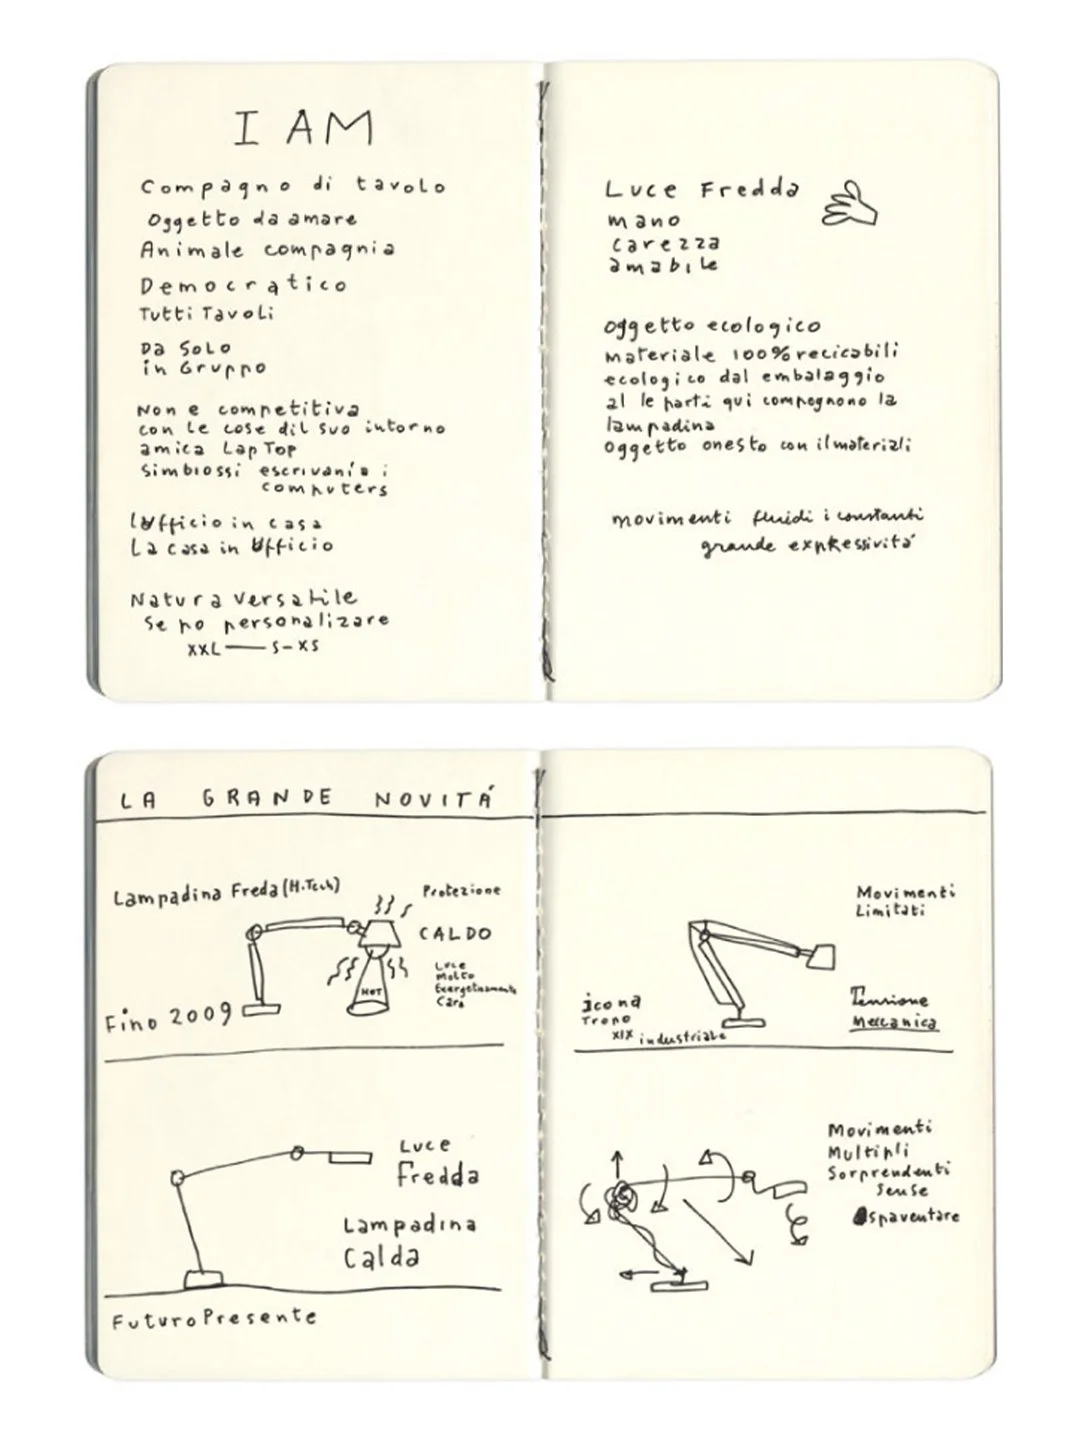 I AM
Compagno di tavolo
Oggetto da amare
Animale compagnia
Democratico
Tutti Tavoli
Da Solo
in Gruppo
Non e competitiva
con le cose dil suo intorno
amica Lap Top
Simbiossi escrivanía i
computers
L'Ufficio in casa
La casa in Ufficio
Natura versatile
Se po personalizare
XXL — S-XS
Luce Fredda
mano
carezza
amabile
Oggetto ecologico
materiale 100% recicabili
ecologico dal embalaggio
al le parti qui compognono la
lampadina
Oggetto onesto con il materiali
movimenti fluidi i constanti
grande expressivitá
LA GRANDE NOVITÁ
Lampadina Freda (H.Tech)
Protezione
CALDO
Luce
Molto
Energeticamente
Cara
HOT
Fino 2009
Luce
Fredda
Lampadina
Calda
Futuro Presente
Movimenti
Limitati
icona
Tropo
XIX industriale
Tensione
Meccanica
Movimenti
Multipli
Sorprendenti
Sense
aspaventare